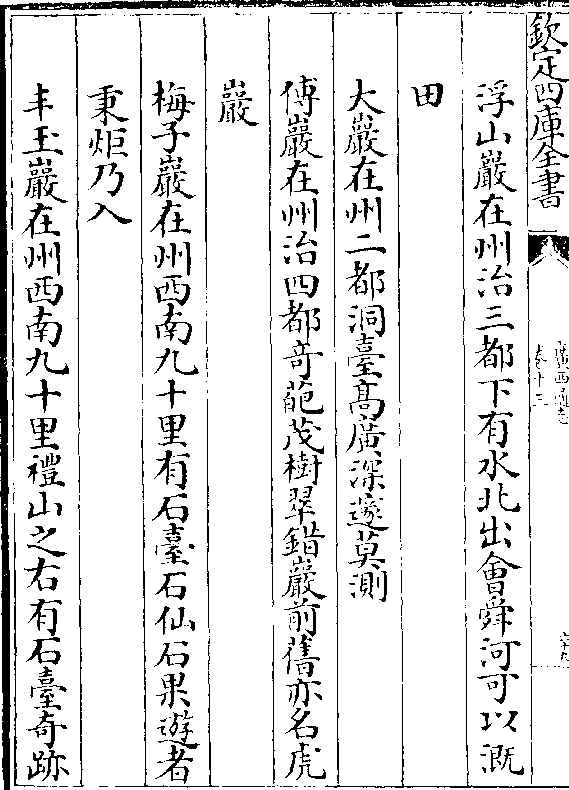 欽定四庫全書
廣西通志
卷十三
六十九
浮山巖在州治三都下有水北出會舜河可以溉
田
大巖在州二都洞臺髙廣深邃莫測
傅巖在州治四都竒葩茂樹翠錯巖前舊亦名虎
巖
梅子巖在州西南九十里有石臺石仙石果遊者
秉炬乃入
丰玉巖在州西南九十里禮山之右有石臺奇跡